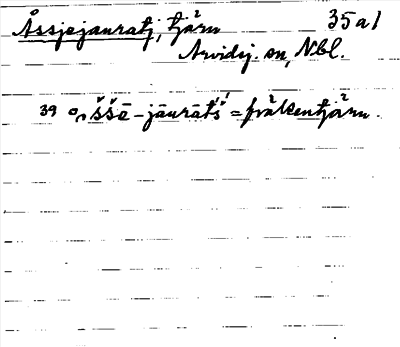 Åssjejauratj, tjärn 35a1
Arvidsj. sn, Nbl.
39 åššē-jāurātš́ = fräkentjärn.